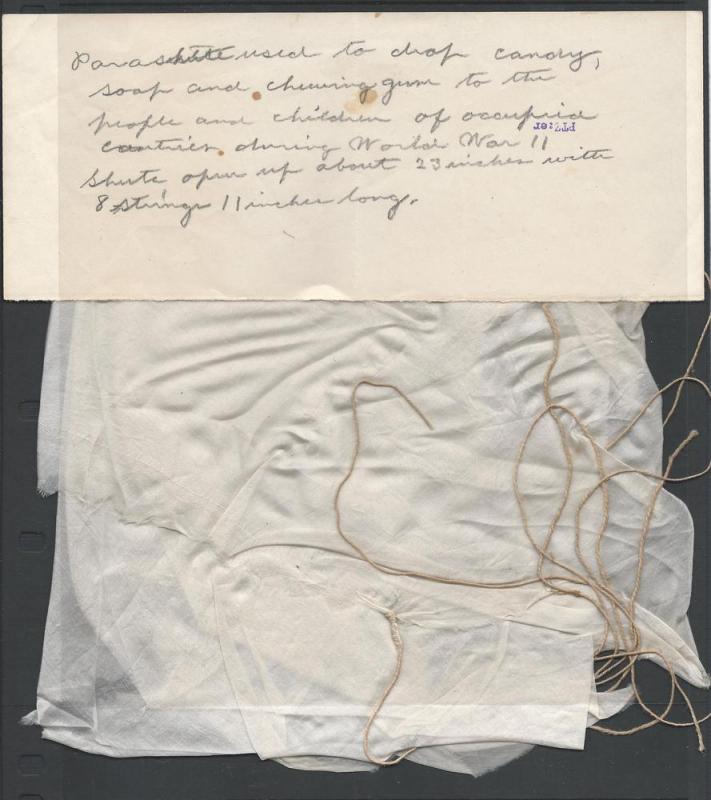 Parashute used to drop candy,
soap and chewing gum to the
people and children of occupied
countries during World War 11
Shute open up about 23 inches with
8 strings 11 inches long.